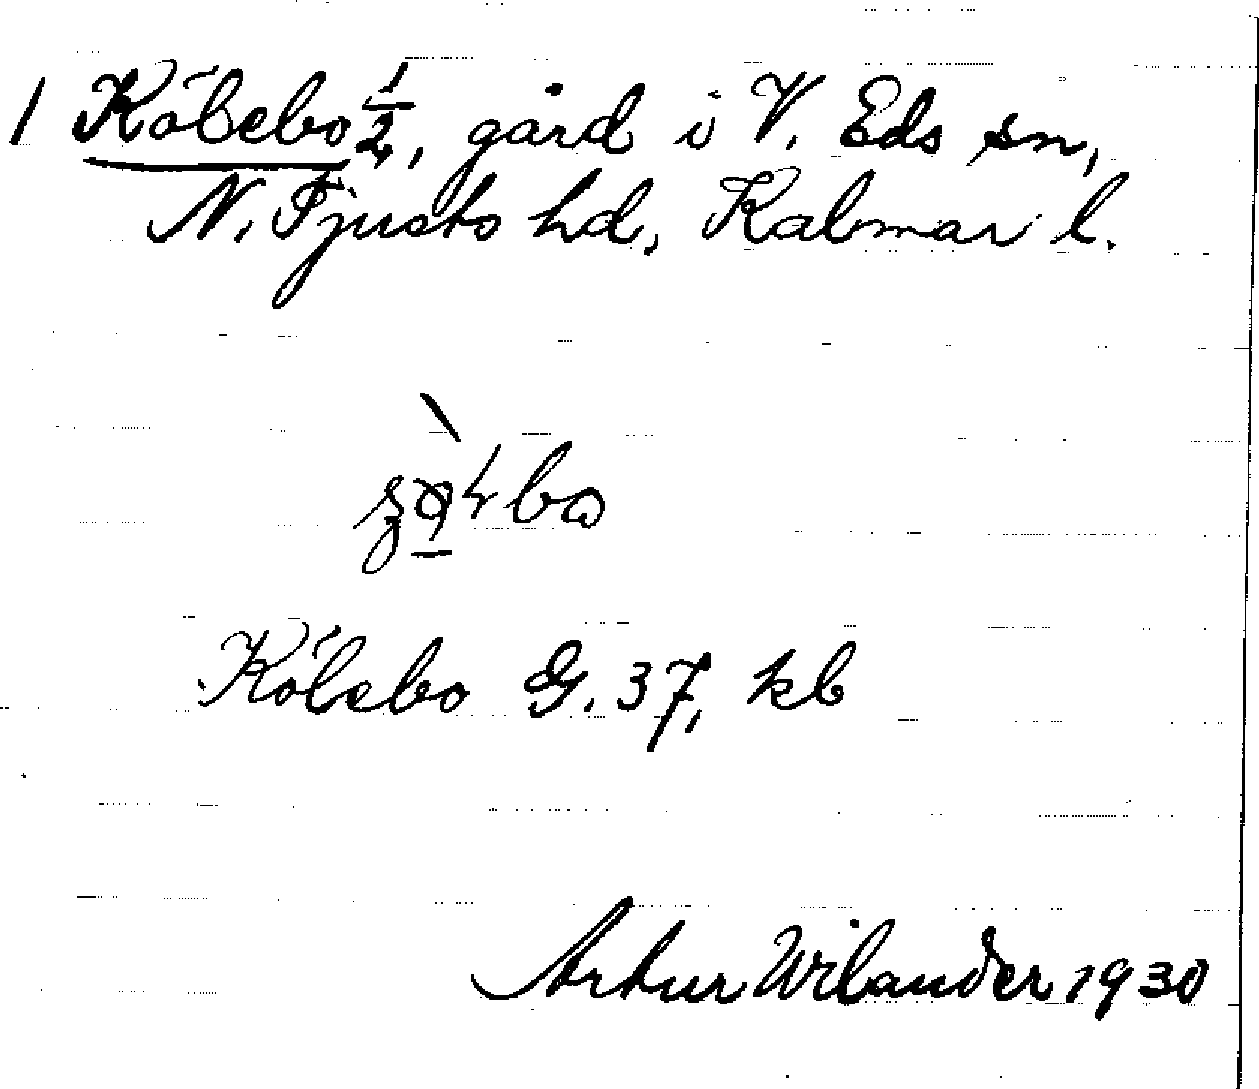 1 Kölebo 1/2, gård i V. Eds sn,
N. Tjusts hd, Kalmar l.
Kölebo G. 37, kb
Artur Wilander 1930